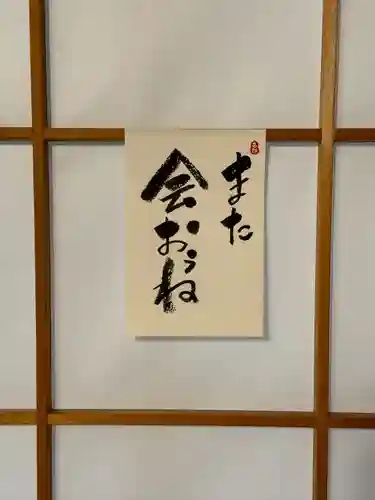 また
会おうね